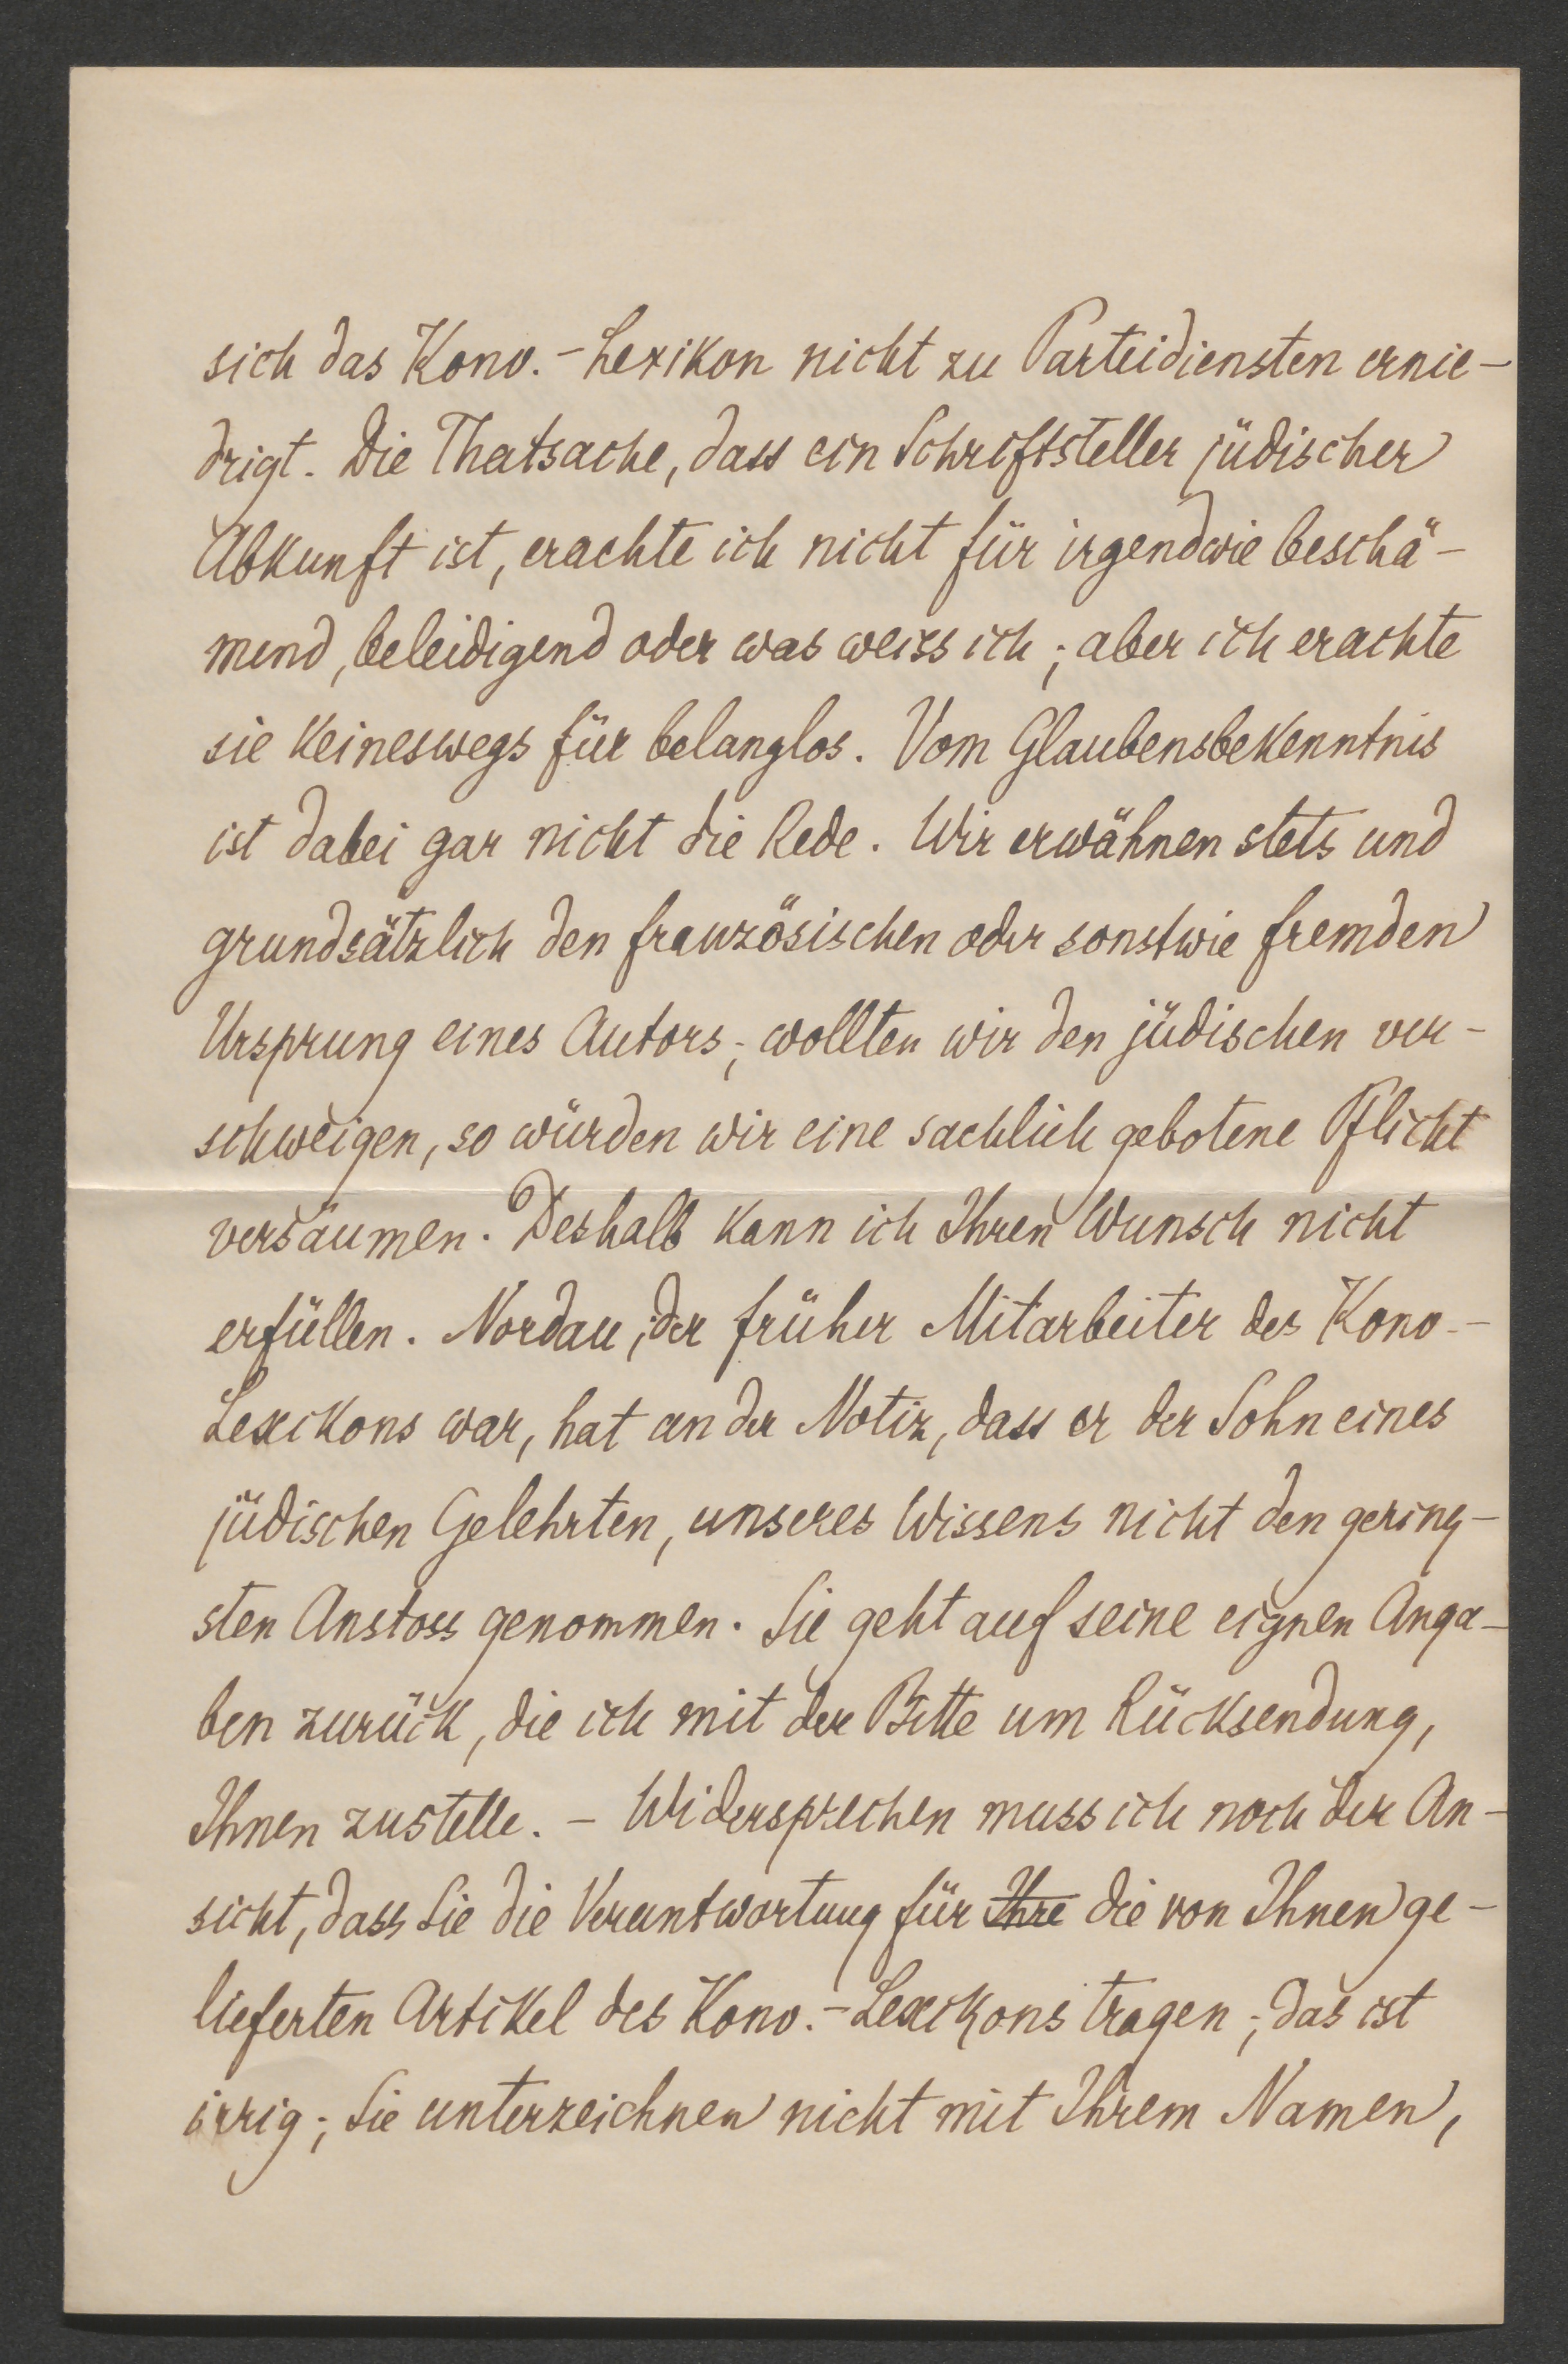 sich das Konv.-Lexikon nicht zu Parteidiensten ernie-
drigt. Die Thatsache, dass ein Schriftsteller jüdischer
Abkunft ist, erachte ich nicht für irgendwie beschä-
mend, beleidigend oder was weiss ich; aber ich erachte
sie keineswegs für belanglos. Vom Glaubensbekenntnis
ist dabei gar nicht die Rede. Wir erwähnen stets und
grundsätzlich den französischen oder sonstwie fremden
Ursprung eines Autors; wollten wir den jüdischen ver-
schweigen, so würden wir eine sachlich gebotene Pflicht
versäumen. Deshalb kann ich Ihren Wunsch nicht
erfüllen. Nordau, der früher Mitarbeiter des Konv.-
Lexikons war, hat an der Notiz, dass er der Sohn eines
jüdischen Gelehrten, unseres Wissens nicht den gering-
sten Anstoss genommen. Sie geht auf seine eignen Anga-
ben zurück, die ich mit der Bitte um Rücksendung,
Ihnen zustelle. - Widersprechen muss ich noch der An-
sicht, dass Sie die Verantwortung für Ihre die von Ihnen ge-
lieferten Artikel des Konv.-Lexikons tragen; das ist
irrig; Sie unterzeichnen nicht mit Ihrem Namen,